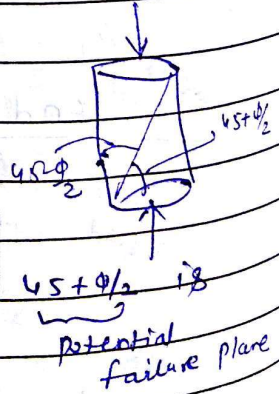 45+Φ/2
45-Φ/2
45+Φ/2 is
potential
failure plane